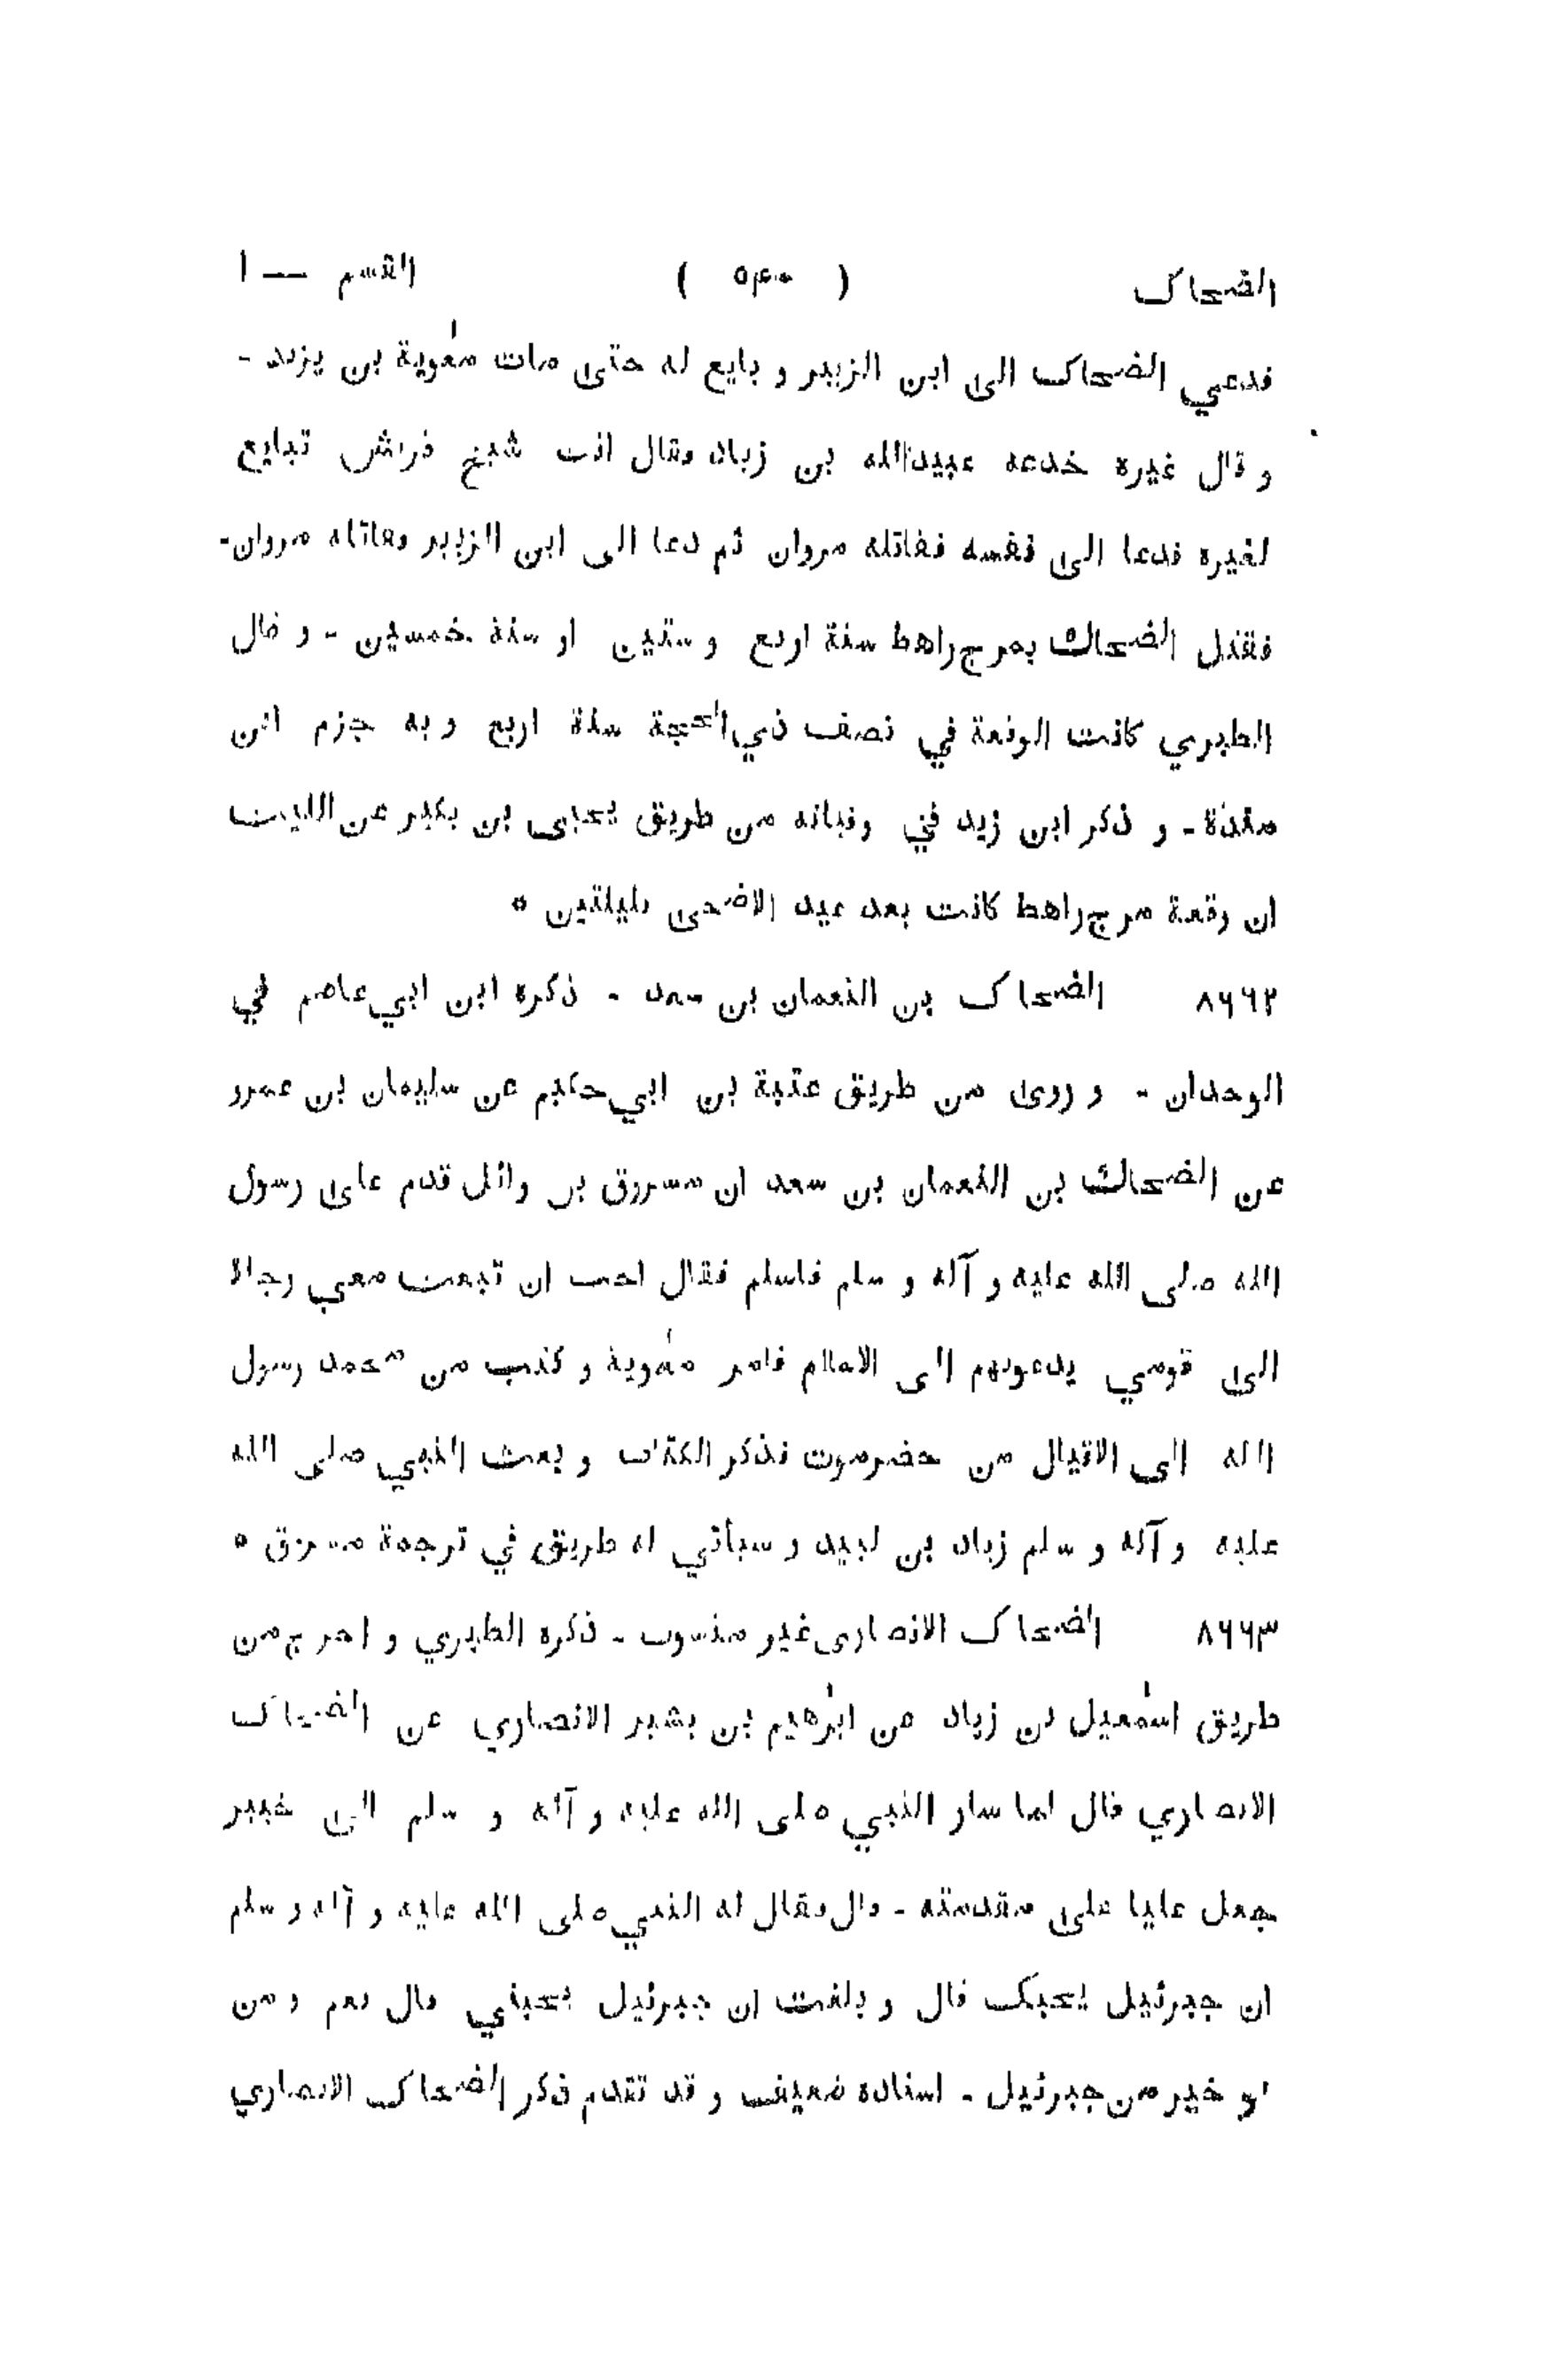 الضحاك ( ٥٤٠ ) القسم — ا
فدعي الضحاك الى ابن الزبير و بايع له حتى مات معٰوية بن يزيد -
و قال غيره خدعه عبيدالله بن زياد فقال انت شيخ قريش تبايع
لغيره فدعا الى نفسه فقاتله مروان ثم دعا الى ابن الزبير فقاتله مروان-
فقتل الضحاك بمرج راهط سنة اربع و ستين او سنة خمسين - و قال
الطبري كانت الوقعة في نصف ذي الحجة سنة اربع و به جزم ابن
مندة - و ذكر ابن زيد في وفياته من طريق يحيى بن بكير عن الليث
ان وقعة مرج راهط كانت بعد عيد الاضحى بليلتين ٥
٨٦٦٢ الضحاك بن النعمان بن سعد - ذكره ابن ابي عاصم في
الوحدان - و روى من طريق عتبة بن ابي حكيم عن سليمان بن عمرو
عن الضحاك بن النعمان بن سعد ان مسروق بن وائل قدم على رسول
الله صلى الله عليه و آله و سلم فاسلم فقال احب ان تبعث معي رجالا
الى قومي يدعونهم الى الاسلام فامر معٰوية و كتب من محمد رسول
الله الى الاقيال من حضرموت فذكر الكتاب و بعث النبي صلى الله
عليه و آله و سلم زياد بن لبيد و سيأتي له طريق في ترجمة مسروق ٥
٨٦٦٣ الضحاك الانصارى غير منسوب - ذكره الطبري و اخرج من
طريق اسمٰعيل بن زياد عن ابرٰهيم بن بشير الانصاري عن الضحاك
الانصاري قال لما سار النبي صلى الله عليه و آله و سلم الى خيبر
جعل عليا على مقدمته - قال فقال له النبي صلى الله عليه و آله و سلم
ان جبرئيل يحبك قال و بلغت ان جبرئيل يحبني قال نعم و من
هو خير من جبرئيل - اسناده ضعيف و قد تقدم ذكر الضحاك الانصاري